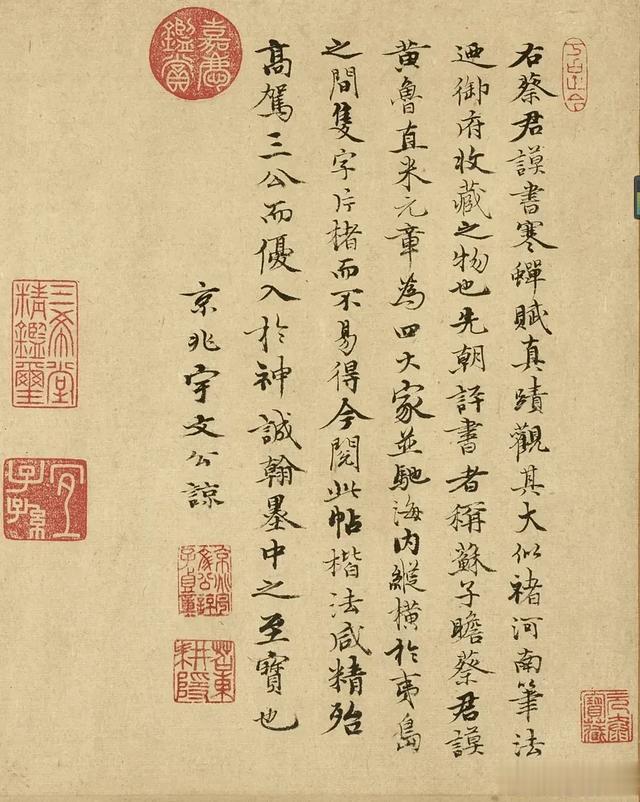 右蔡君謨書寒蟬賦真蹟觀其大似褚河南筆法
迺御府收藏之物也先朝評書者稱蘇子瞻蔡君謨
黄魯直米元章為四大家並馳海內縱橫於夷島
之間隻字片楮而不易得今閱此帖楷法咸精殆
高駕三公而優入於神誠翰墨中之至寶也
京兆宇文公諒
嘉慶鑑賞
三希堂精鑑璽
宜子孫